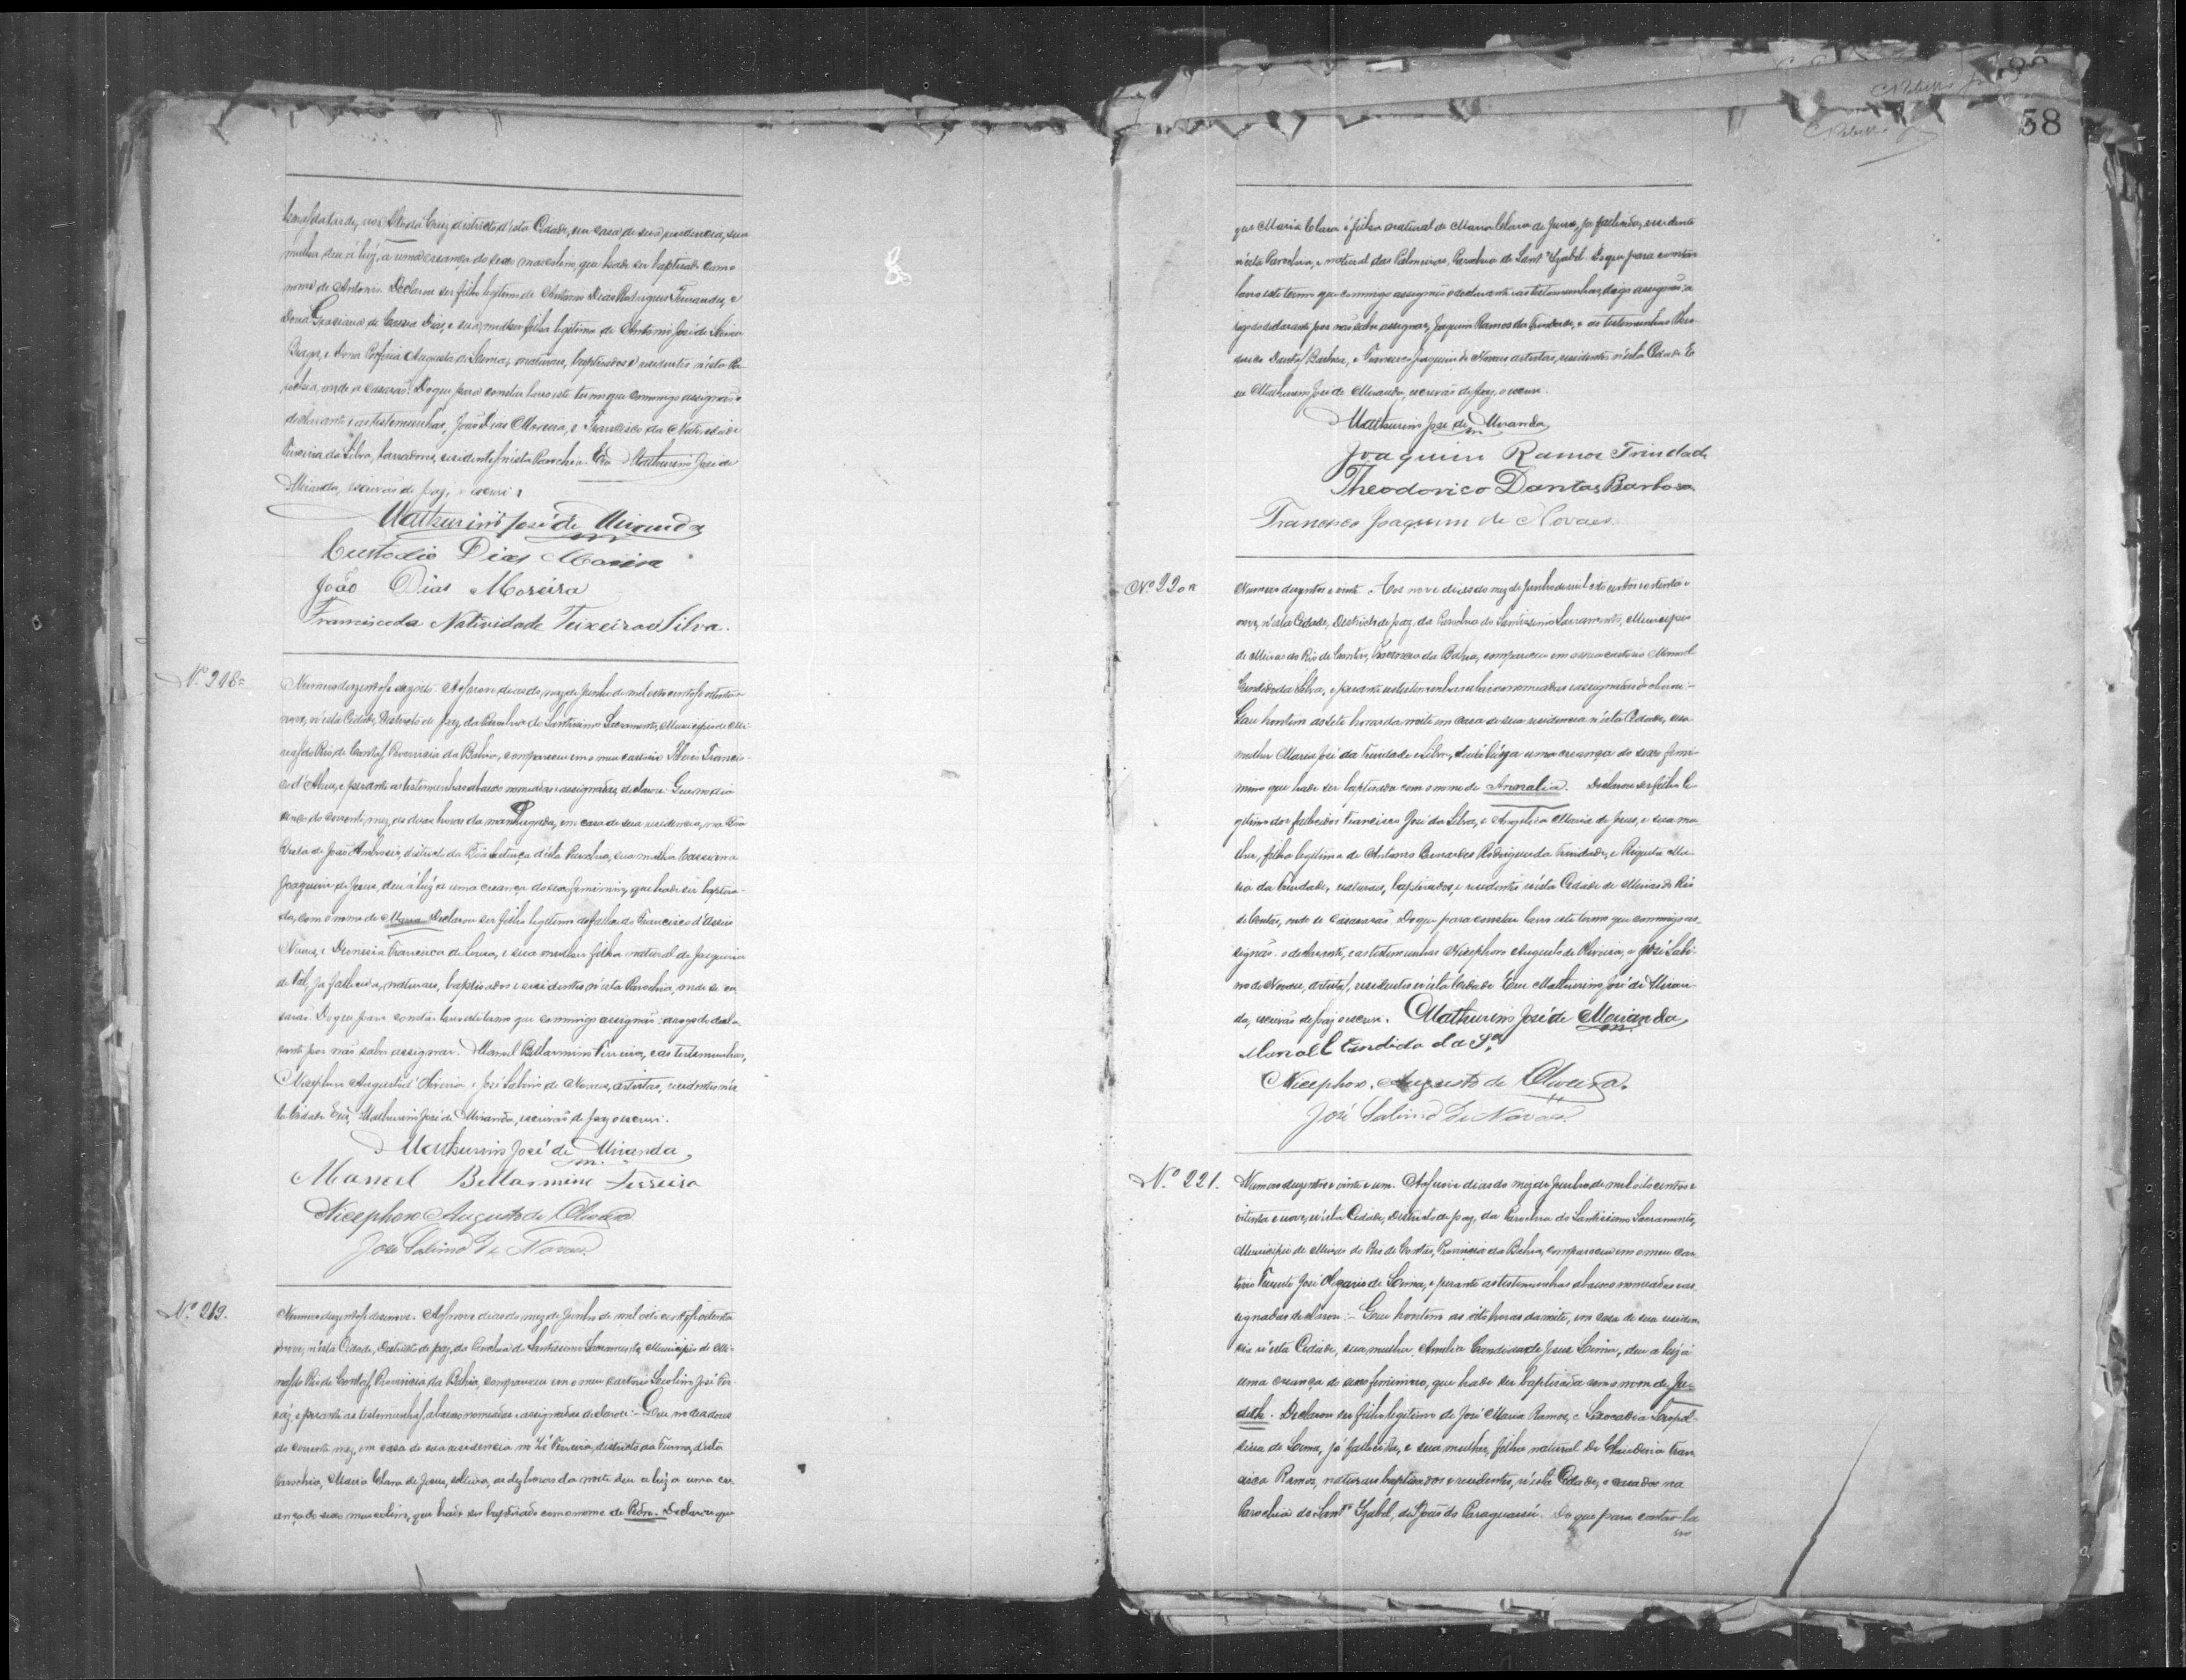 horas da tarde, no Alto da Cruz, districto d'esta Cidade, em casa de sua residencia, sua
mulher deu á luz, a uma creança do sexo masculino, que hade ser baptisado com o
nome de Antonio. Declarou ser filho legitimo de Antonio Dias Rodrigues Fernandes, e
Dona Graciana de Dias, e sua mulher filha legitima de Antonio José de Lima
Braga, e Dona Porfiria Augusta de Lima, naturaes, baptisados e residentes n'esta Pa-
rochia, onde se casarão. Do que para constar lavro este termo que commigo assignão o
declarante e as testemunhas, João Dias Moreira, e Francisco da Natividade
Teixeira da Silva, lavradores, residentes n'esta Parochia. Eu Mathurino José de
Miranda, escrivão de paz, o escrevi.
Mathurino José de Miranda
Custodio Dias Moreira
João Dias Moreira
Francisco da Natividade Teixeira e Silva.
Nº 218.
Numero duzentos e dezoito. Aos nove dias do mez de Junho de mil oito centos e oitenta e
nove, n'esta Cidade, Districto de paz, da Parochia do Santissimo Sacramento, Municipio de Mi-
nas do Rio de Contas, Provincia da Bahia, compareceu em o meu cartorio Francis-
co d' e perante as testemunhas abaixo nomeadas e assignadas, declarou: Que no dia
cinco do corrente mez, as duas horas da madrugada, em casa de sua residencia, na Bôa
Vista de João Ambrosio, districto da d'esta Parochia, sua mulher
Joaquina de Jesus, deu á luz a uma creança do sexo feminino, que hade ser baptisa-
da, com o nome de Maria. Declarou ser filho legitimo do fallecido Francisco d'Assis
Novaes, e Dionisia Francisca de Souza, e sua mulher filha natural de Joaquina
de Tal, já fallecida, naturaes, baptisados e residentes n'esta Parochia, onde se ca-
sarão. Do que para constar lavro este termo que commigo assignão: a rogo do decla-
rante por não saber assignar, Manoel Bellarmino Ferreira, e as testemunhas,
Nicephoro Augusto d'Oliveira, e José Sabino de Novaes, artistas, residentes n'es-
ta Cidade. Eu, Mathurino José de Miranda, escrivão de paz o escrevi.
Mathurino José de Miranda
Manoel Bellarmino Ferreira
Nicephoro Augusto de Oliveira
José Sabino de Novaes
Nº 219.
Numero duzentos e desenove. Aos nove dias do mez de Junho de mil oito centos e oitenta
e nove, n'esta Cidade, Districto de paz, da Parochia do Santissimo Sacramento, Municipio de Mi-
nas do Rio de Contas, Provincia da Bahia, compareceu em o meu cartorio José Fer-
raz, e perante as testemunhas abaixo nomeadas e assignadas declarou: - Que no dia
do corrente mez, em casa de sua residencia no Zé Ferreira, districto da Furna, d'esta
Parochia, Maria Clara de Jesus, solteira, as dez horas da noite deu a luz a uma cre-
ança do sexo masculino, que hade ser baptisado com o nome de Pedro. Declarou que
58
que Maria Clara é filha natural de Maria Clara de Jesus, já fallecida, residente
n'esta Parochia, e natural das Palmeiras, Parochia de Sant' Izabel. Do que para constar
lavro este termo que commigo assignão o declarante e as testemunhas, digo assignão: a
rogo do declarante por não saber assignar, Joaquim Ramos da Trindade, e as testemunhas Theo-
dorico Dantas Barbosa, e Francisco Joaquim de Novaes artistas, residentes n'esta Cidade. E
eu Mathurino José de Miranda, escrivão de paz, o escrevi.
Mathurino José de Miranda
Joaquim Ramos Trindade
Theodorico Dantas Barbosa
Francisco Joaquim de Novaes
Nº 220
Numero duzentos e vinte. Aos nove dias do mez de Junho de mil oito centos e oitenta e
nove, n'esta Cidade, Districto de paz, da Parochia do Santissimo Sacramento, Municipio
de Minas do Rio de Contas, Provincia da Bahia, compareceu em o meu cartorio Manoel
Candido da Silva, e perante as testemunhas abaixo nomeadas e assignadas declarou: -
Que hontem as sete horas da noite em casa de sua residencia n'esta Cidade, sua
mulher Maria José da Trindade e Silva, deu á luz a uma creança do sexo femi-
nino que hade ser baptisada com o nome de Annalia. Declarou ser filho le-
gitimo dos fallecidos Francisco José da Silva, e Angelica Maria de Jesus, e sua mu-
lher, filha legitima de Antonio Bernardes Rodrigues da Trindade, e Ma-
ria da Trindade, naturaes, baptisados, e residentes n'esta Cidade de Minas do Rio
de Contas, onde se casarão. Do que para constar lavro este termo que commigo as-
signão o declarante, e as testemunhas Nicephoro Augusto de Oliveira, e José Sabi-
no de Novaes, artistas, residentes n'esta Cidade. Eu Mathurino José de Miran-
da, escrivão de paz o escrevi. Mathurino José de Miranda
Manoel Candido da Sª
Nicephoro Augusto de Oliveira
José Sabino de Novaes
Nº 221.
Numero duzentos e vinte e um. Aos nove dias do mez de Junho de mil oito centos e
oitenta e nove, n'esta Cidade, Districto de paz, da Parochia do Santissimo Sacramento,
Municipio de Minas do Rio de Contas, Provincia da Bahia, compareceu em o meu car-
torio Tenente José Olegario de Lima, e perante as testemunhas abaixo nomeadas e as-
signadas declarou: - Que hontem as oito horas da noite, em casa de sua residen-
cia n'esta Cidade, sua mulher, Amelia Candida de Jesus Lima, deu a luz a
uma creança do sexo feminino, que hade ser baptisada com o nome de Ju-
dith. Declarou ser filho legitimo de José Maria Ramos, e Leocadia Leopol-
dina de Lima, já fallecidos, e sua mulher, filha natural de Claudina Fran-
cisca Ramos, naturaes baptisados e residentes, n'esta Cidade, e casados na
Parochia de Santª Izabel, de S. João do Paraguassú. Do que para constar la-
vro